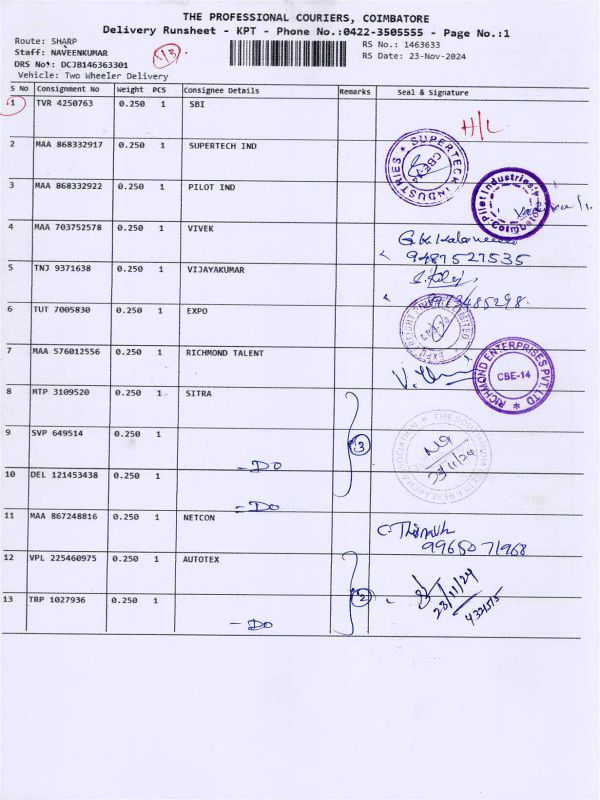 THE PROFESSIONAL COURIERS, COIMBATORE
Delivery Runsheet - KPT - Phone No.:0422-3505555 - Page No.:1
Route: SHARP
Staff: NAVEENKUMAR
DRS No: DCJB146363301
Vehicle: Two Wheeler Delivery
RS No.: 1463633
RS Date: 23-Nov-2024
S No Consignment No Weight PCS Consignee Details Remarks Seal & Signature
1 TVR 4250763 0.250 1 SBI H/L
2 MAA 868332917 0.250 1 SUPERTECH IND
SUPERTECH INDUSTRIES
3 MAA 868332922 0.250 1 PILOT IND
Pilot Industries
Coimbatore
4 MAA 703752578 0.250 1 VIVEK
9487527535
5 TNJ 9371638 0.250 1 VIJAYAKUMAR
6 TUT 7005830 0.250 1 EXPO
7 MAA 576012556 0.250 1 RICHMOND TALENT
RICHMOND ENTERPRISES PVT. LTD
CBE-14
8 MTP 3109520 0.250 1 SITRA
9 SVP 649514 0.250 1 - DO
3
23/11/24
10 DEL 121453438 0.250 1 - DO
11 MAA 867248816 0.250 1 NETCON
9965071968
12 VPL 225460975 0.250 1 AUTOTEX
23/11/24
13 TRP 1027936 0.250 1 - DO
2